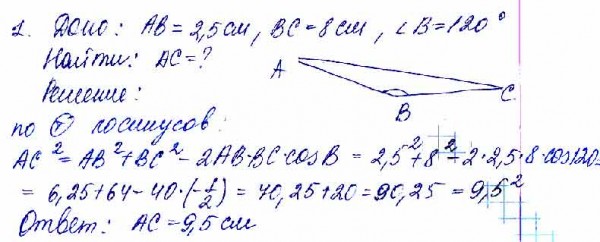 1. Дано: AB = 2,5 см, BC = 8 см, ∠B = 120°
Найти: AC = ?
A
C
B
Решение:
по Ⓣ косинусов:
AC² = AB² + BC² - 2AB·BC·cosB = 2,5² + 8² - 2·2,5·8·cos120=
= 6,25 + 64 - 40·(-1/2) = 70,25 + 20 = 90,25 = 9,5²
Ответ: AC = 9,5 см